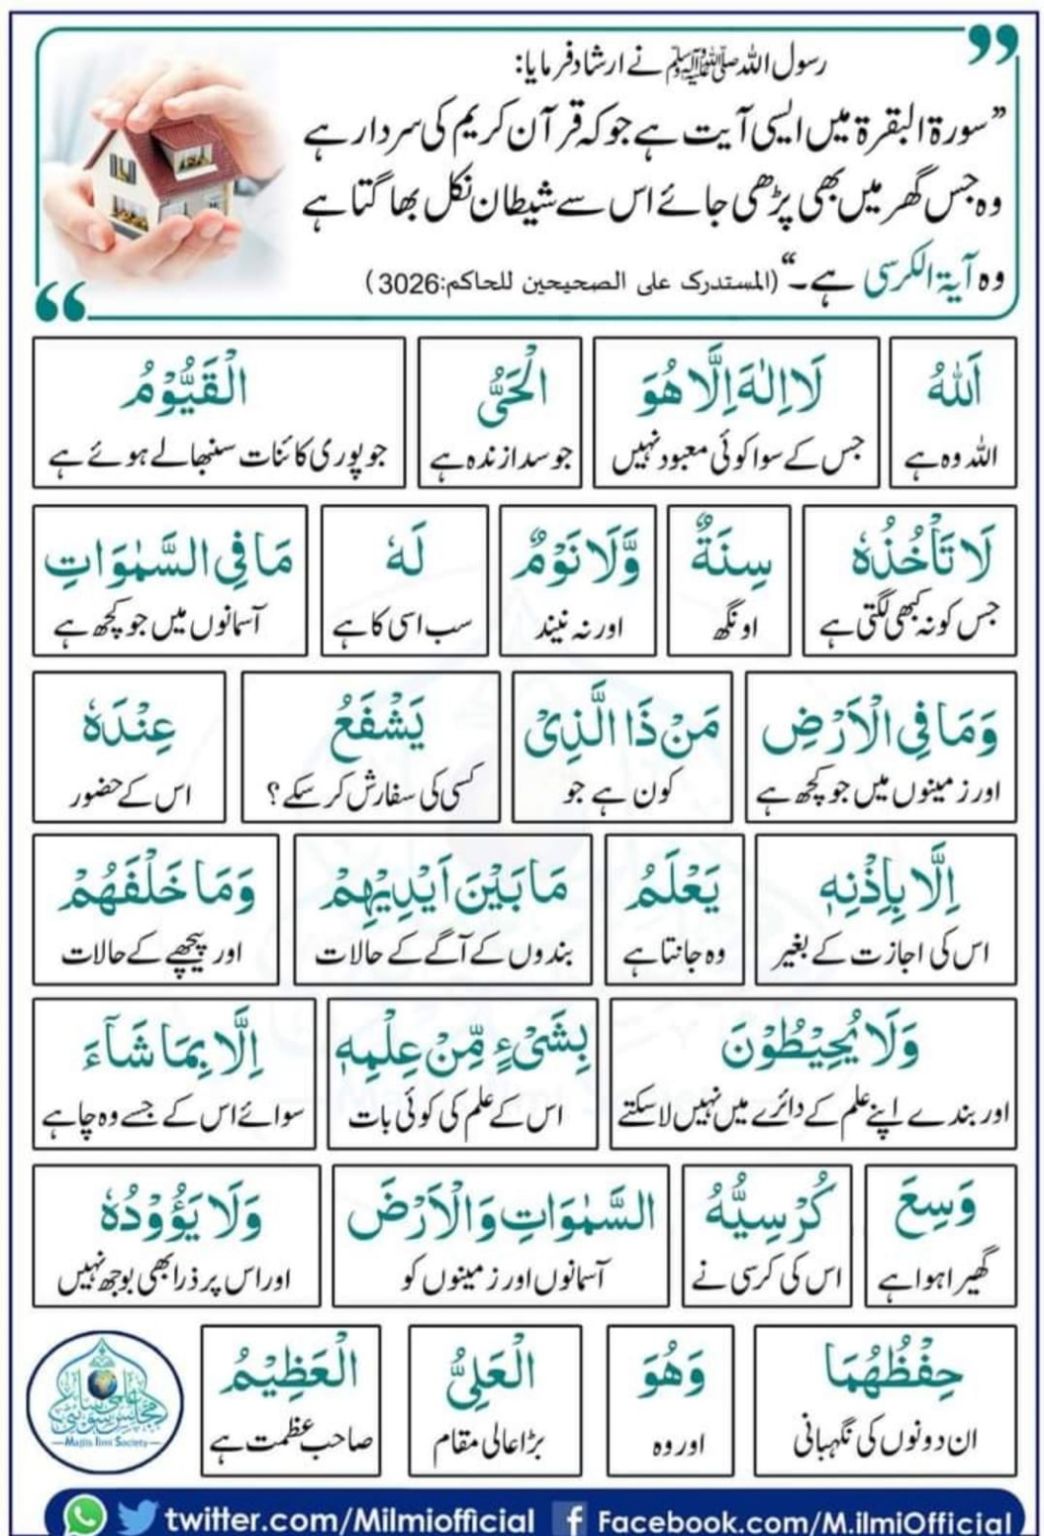 رسول اللہ صلی اللہ علیہ وسلم نے ارشاد فرمایا:
”سورة البقرة میں ایسی آیت ہے جو کہ قرآن کریم کی سردار ہے
وہ جس گھر میں بھی پڑھی جائے اس سے شیطان نکل بھاگتا ہے
وہ آیة الکرسی ہے۔“ (المستدرک علی الصحیحین للحاکم:3026)
اَللّٰهُ لَا اِلٰهَ اِلَّا هُوَ الْحَیُّ الْقَیُّوْمُ
اللہ وہ ہے جس کے سوا کوئی معبود نہیں جو سدا زندہ ہے جو پوری کائنات سنبھالے ہوئے ہے
لَا تَاْخُذُهٗ سِنَةٌ وَّلَا نَوْمٌ لَهٗ مَا فِی السَّمٰوَاتِ
جس کو نہ کبھی لگتی ہے اونگھ اور نہ نیند سب اسی کا ہے آسمانوں میں جو کچھ ہے
وَمَا فِی الْاَرْضِ مَنْ ذَا الَّذِیْ یَشْفَعُ عِنْدَهٗ
اور زمینوں میں جو کچھ ہے کون ہے جو کسی کی سفارش کر سکے؟ اس کے حضور
اِلَّا بِاِذْنِهٖ یَعْلَمُ مَا بَیْنَ اَیْدِیْهِمْ وَمَا خَلْفَهُمْ
اس کی اجازت کے بغیر وہ جانتا ہے بندوں کے آگے کے حالات اور پیچھے کے حالات
وَلَا یُحِیْطُوْنَ بِشَیْءٍ مِّنْ عِلْمِهٖ اِلَّا بِمَا شَآءَ
اور بندے اپنے علم کے دائرے میں نہیں لا سکتے اس کے علم کی کوئی بات سوائے اس کے جسے وہ چاہے
وَسِعَ کُرْسِیُّهُ السَّمٰوَاتِ وَالْاَرْضَ وَلَا یَؤُوْدُهٗ
گھیرا ہوا ہے اس کی کرسی نے آسمانوں اور زمینوں کو اور اس پر ذرا بھی بوجھ نہیں
حِفْظُهُمَا وَهُوَ الْعَلِیُّ الْعَظِیْمُ
ان دونوں کی نگہبانی اور وہ بڑا عالی مقام صاحب عظمت ہے
Majlis Ilmi Society
twitter.com/Milmiofficial Facebook.com/M.ilmiOfficial